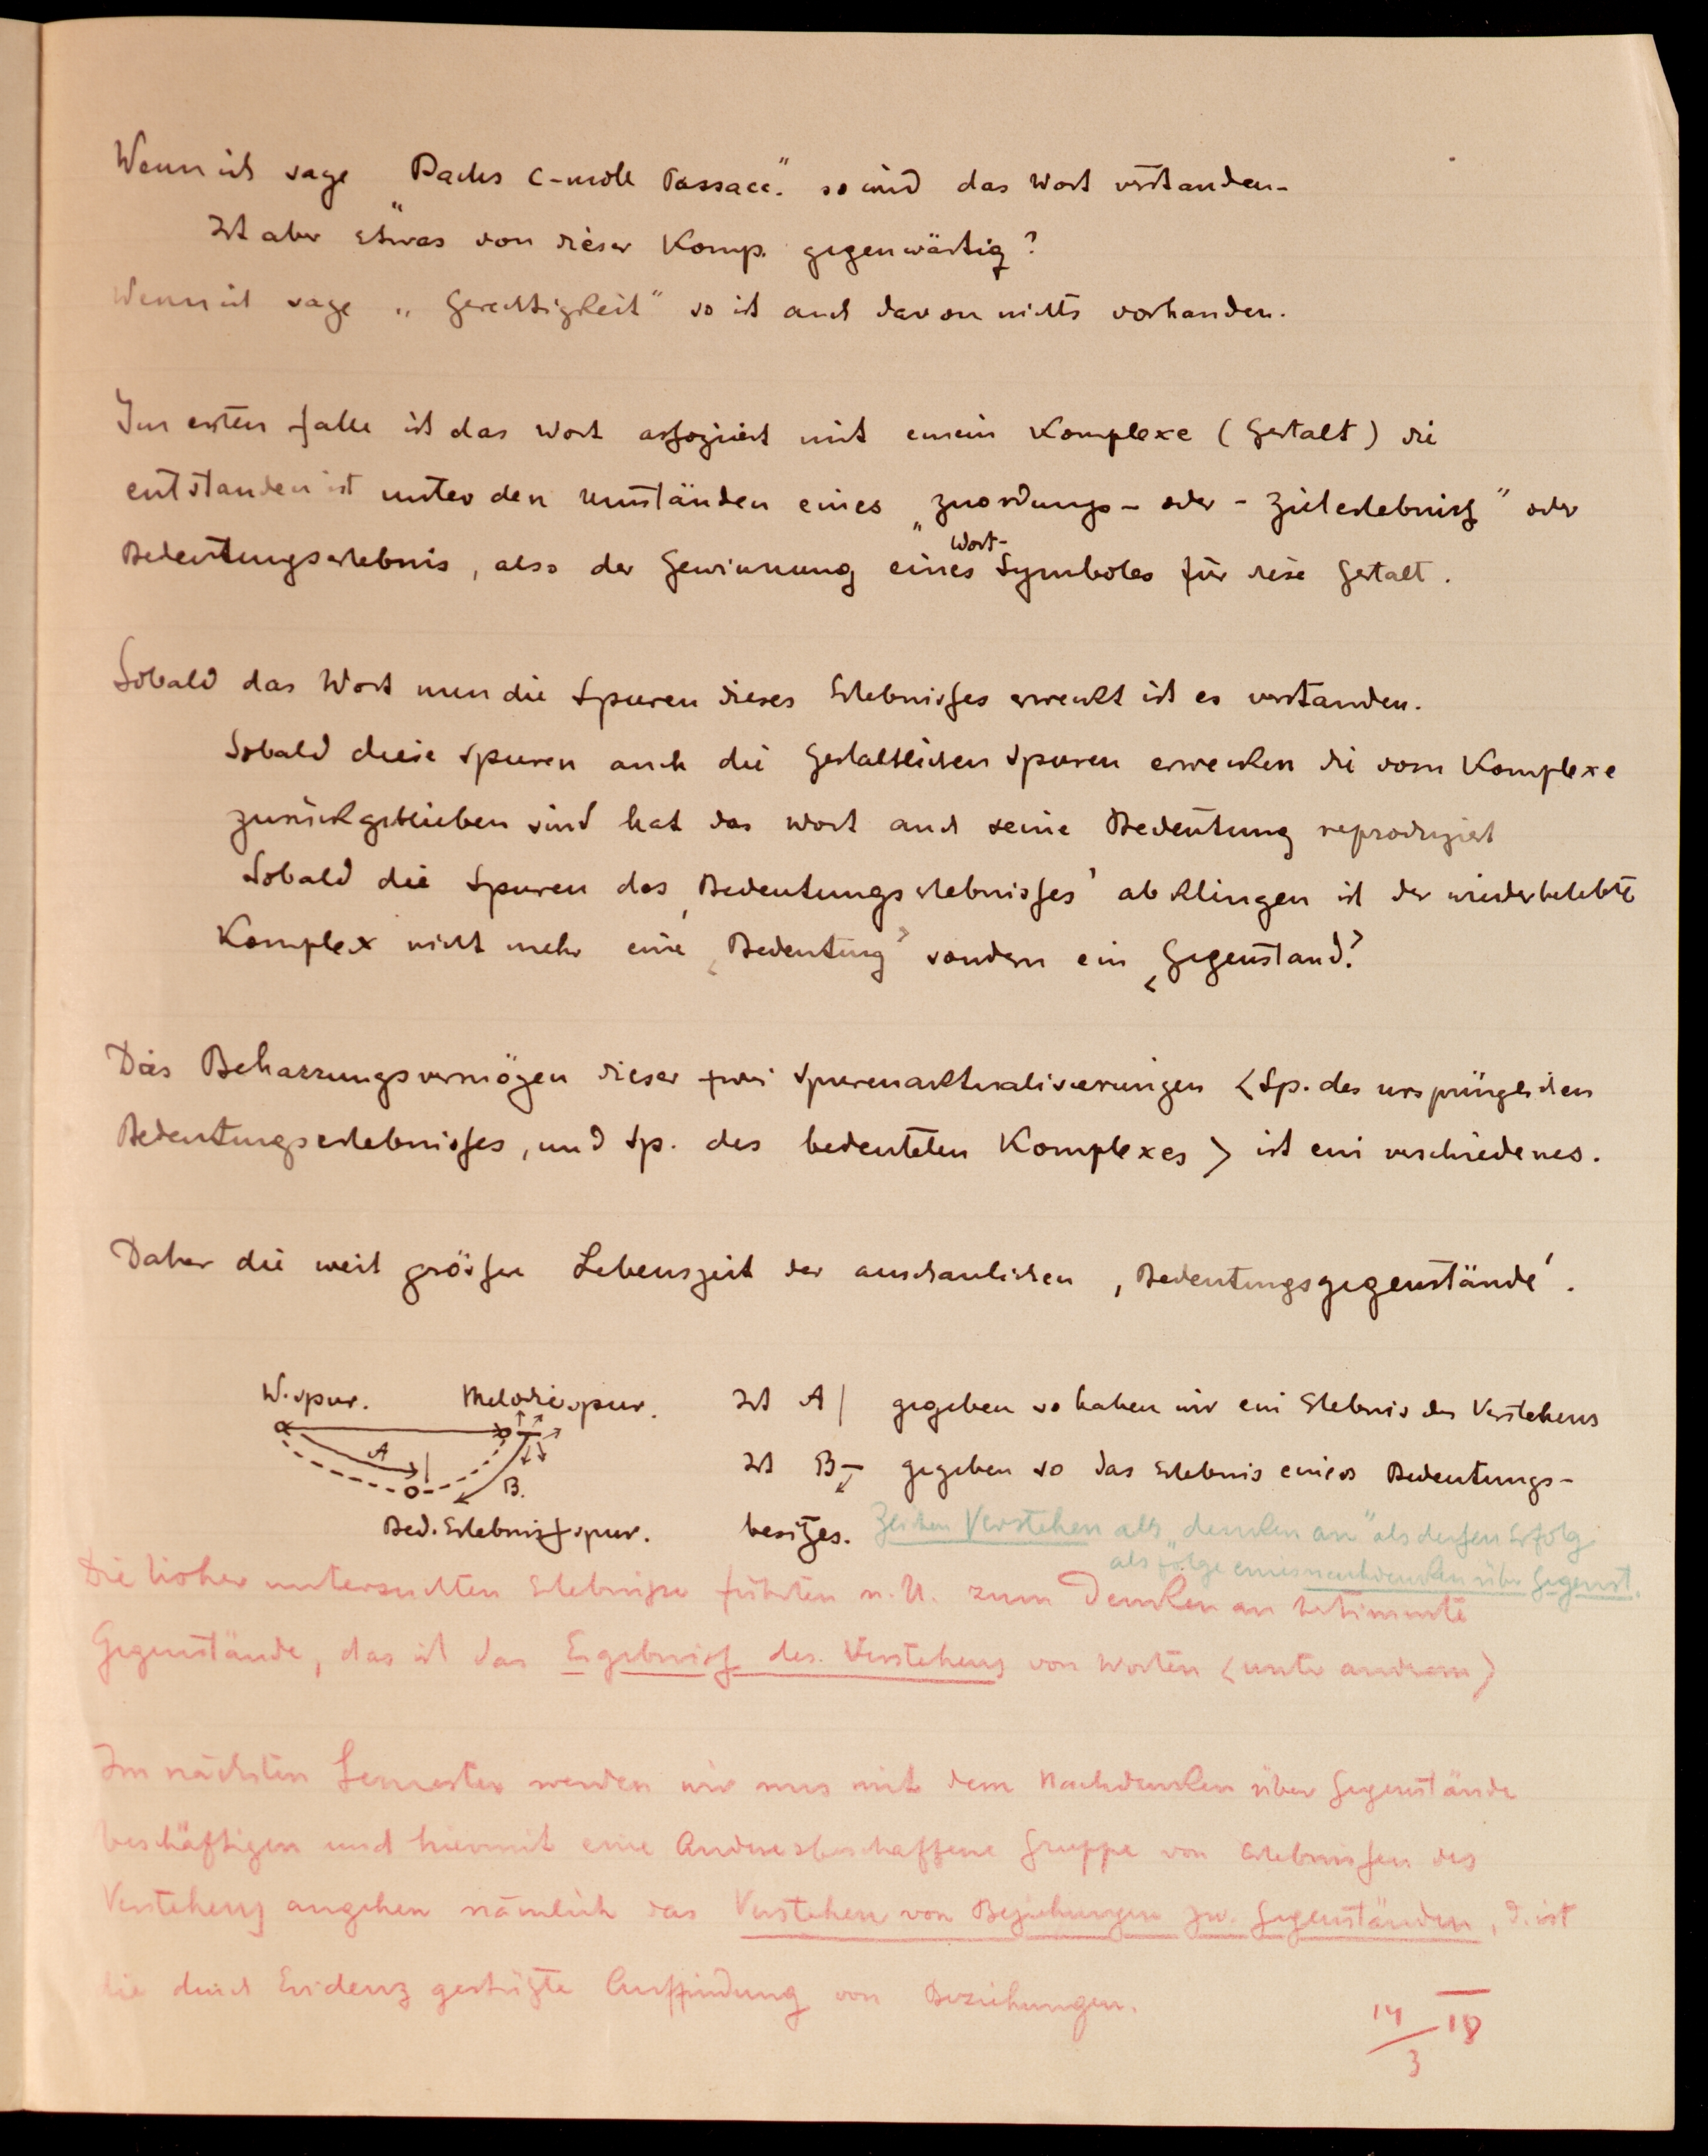 Wenn ich sage „Bachs C-moll Passacc." so wird das Wort verstanden-
Ist aber etwas von dieser Komp. gegenwärtig?
Wenn ich sage „Gerechtigkeit" so ist auch davon nichts vorhanden.
Im ersten Falle ist das Wort assoziiert mit einem Komplexe (Gestalt) die
entstanden ist unter den Umständen eines „Zuordungs- oder - Zielerlebniss" oder
Bedeutungserlebnis, also der Gewinnung eines Wort-Symboles für diese Gestalt.
Sobald das Wort nun die Spuren dieses Erlebnisses erweckt ist es verstanden.
Sobald diese Spuren auch die gestaltlichen Spuren erwecken die vom Komplexe
zurückgeblieben sind hat das Wort auch seine Bedeutung reproduziert
Sobald die Spuren des ‚Bedeutungserlebnisses' abklingen ist der wiederbelebte
Komplex nicht mehr eine ‚Bedeutung' sondern ein ‚Gegenstand'.
Das Beharrungsvermögen dieser zwei Spurenaktualisierungen <Sp. des ursprünglichen
Bedeutungserlebnisses, und Sp. des bedeuteten Komplexes> ist ein verschiedenes.
Daher die weit grössere Lebenszeit der anschaulichen ‚Bedeutungsgegenstände'.
W. spur. Melodiespur.
A
B.
Bed. Erlebnissspur.
Ist A| gegeben so haben wir ein Erlebnis des Verstehens
Ist B— gegeben so das Erlebnis eines Bedeutungs-
besitzes. Zeichen Verstehen als „denken an" als dessen Erfolg
als Folge eines nachdenken über Gegenst.
Die bisher untersuchten Erlebnisse führten u. U. zum Denken an bestimmte
Gegenstände, das ist das Ergebniss des Verstehens von Worten <unter anderem>
Im nächsten Semester werden wir uns mit dem Nachdenken über Gegenstände
beschäftigen und hiermit eine Andersbeschaffene Gruppe von Erlebnissen des
Verstehens angehen nämlich das Verstehen von Beziehungen zw. Gegenständen, d. ist
die durch Evidenz gestützte Auffindung von Beziehungen.
14/3 18